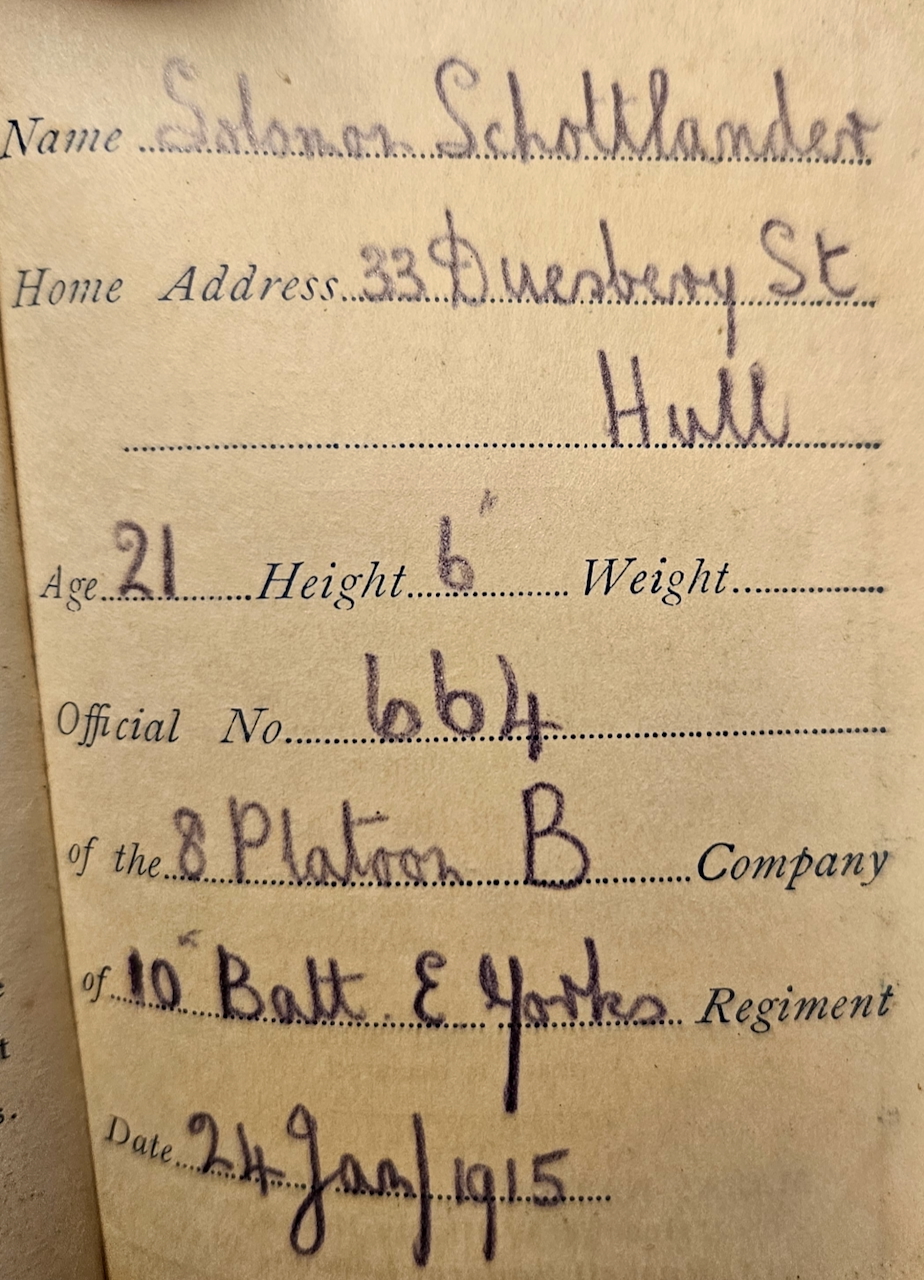 Name Solomon Schottlander
Home Address 33 Duesbery St
Hull
Age 21 Height 6" Weight
Official No. 664
of the 8 Platoon B Company
of 10 Batt. E Yorks Regiment
Date 24 Jan/1915